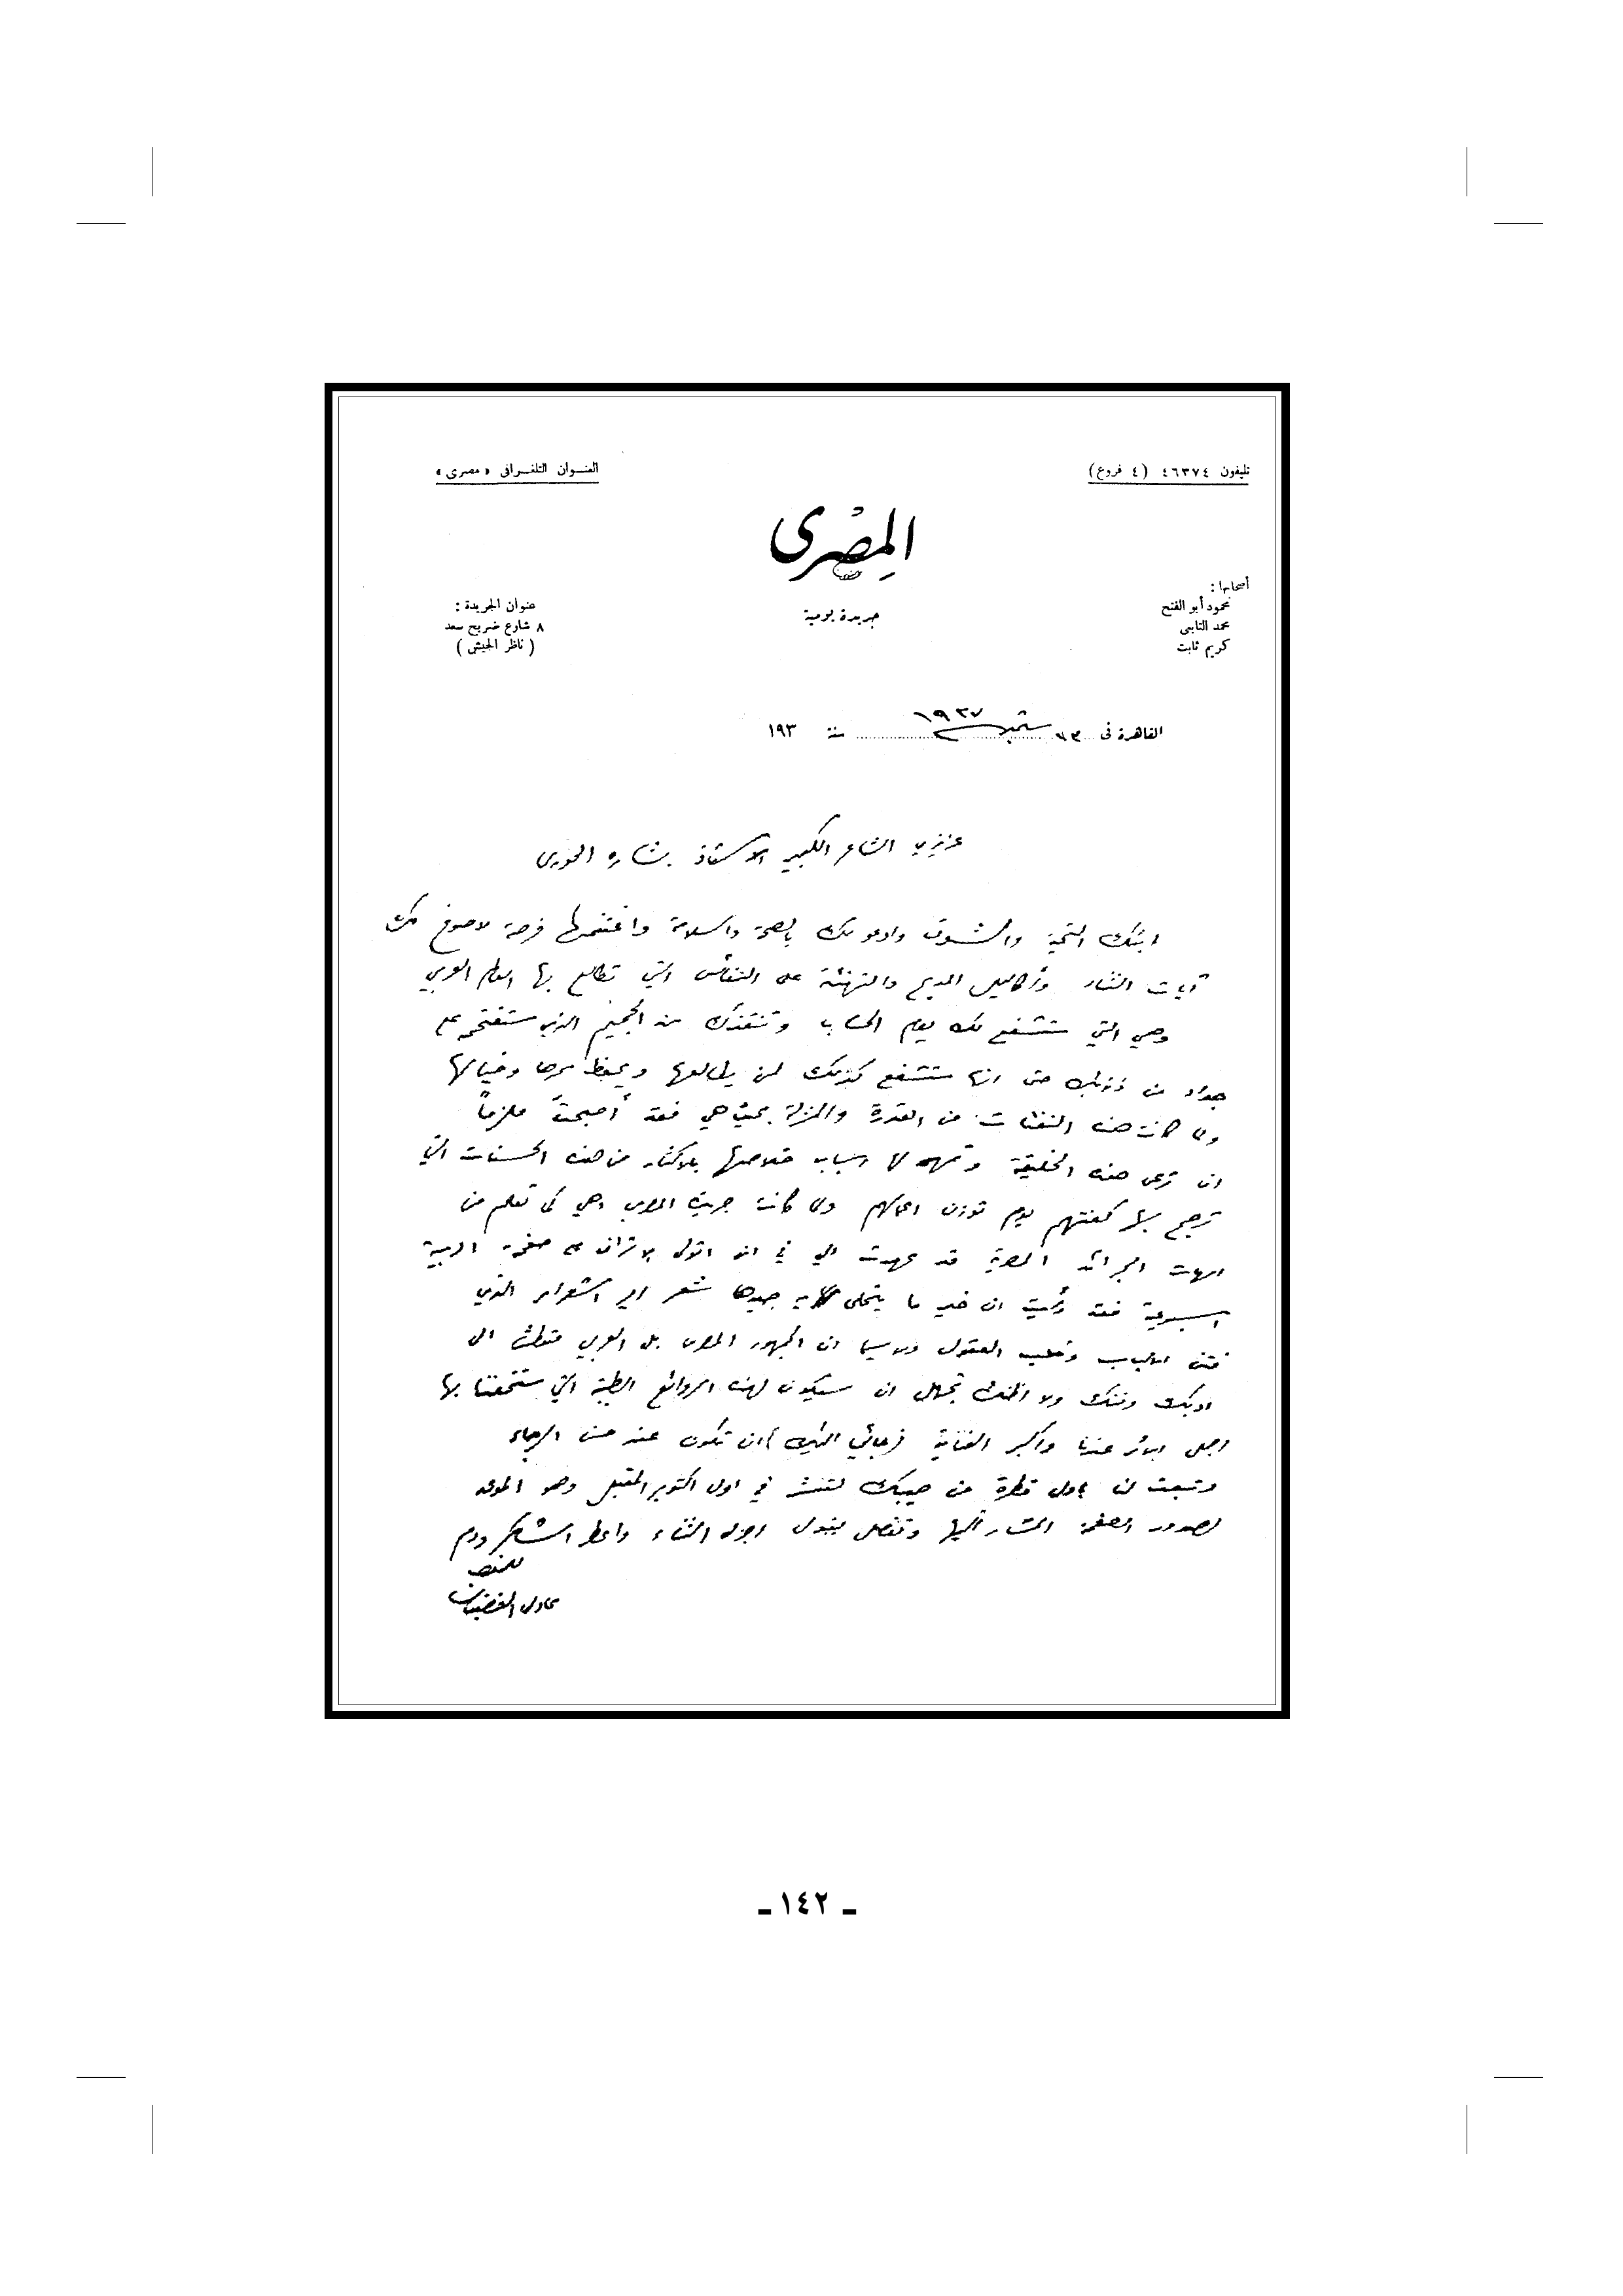 تليفون ٤٦٣٧٤ (٤ فروع)
العنـوان التلغـرافى «مصرى»
المِصْرى
جريدة يومية
أصحابها :
محمود أبو الفتح
محمد التابعى
كريم ثابت
عنوان الجريدة :
٨ شارع ضريح سعد
( ناظر الجيش )
القاهرة فى ٢٣ سبتمبر ١٩٣٧ سنة ١٩٣
عزيزي الشاعر الكبير الاستاذ بشاره الخورى
ابثك التحية والشوق وادعو لك بالصحة والسلامة واغتنمها فرصة لاصوغ لك
آيات الثناء وأكاليل المديح والتهنئة على النفائس التي تطالع بها العالم العربي
وهي التي ستشفع لك يوم الحساب وتنقذك من الجحيم الذي ستقتحمه على
جواد من ذنوبك حتى انها ستشفع كذلك لمن يطالعها ويحفظ سرها وخيالها
ولما كانت هذه النفثات من القدرة والمنزلة بحيث هي فقد أصبحتَ ملزماً
ان ترعى هذه الخليقة وتمهد لها اسباب خلاصها بالاكثار من هذه الحسنات التي
ترجح بها كفتهم يوم توزن اعمالهم ولما كانت جريدة المصري وهي كما تعلم من
امهات الجرائد المصرية قد عهدت الي في ان اتولى الاشراف على صفحة ادبية
اسبوعية فقد رأيت ان خير ما يتحلى به جيدها شعر امير الشعراء الذي
فتن الالباب وخلب العقول ولا سيما ان الجمهور المصري بل العربي متعطش الى
ادبك وفنك ولا اظنك تجهل ان سيكون لهذه الروائع الطيبة التي ستتحفنا بها
اجمل الاثر عندنا واكبر العناية فرجائي اليك ان تكون عند حسن الرجاء
وتبعث لنا باول قطرة من صيبك لتنشر في اول اكتوبر المقبل وهو الموعد
لصدور الصفحة المشار اليها وتفضل بقبول اجزل الثناء واعطر الشكر ودم
للمخلص
عادل الغضبان
ـ ١٤٢ ـ